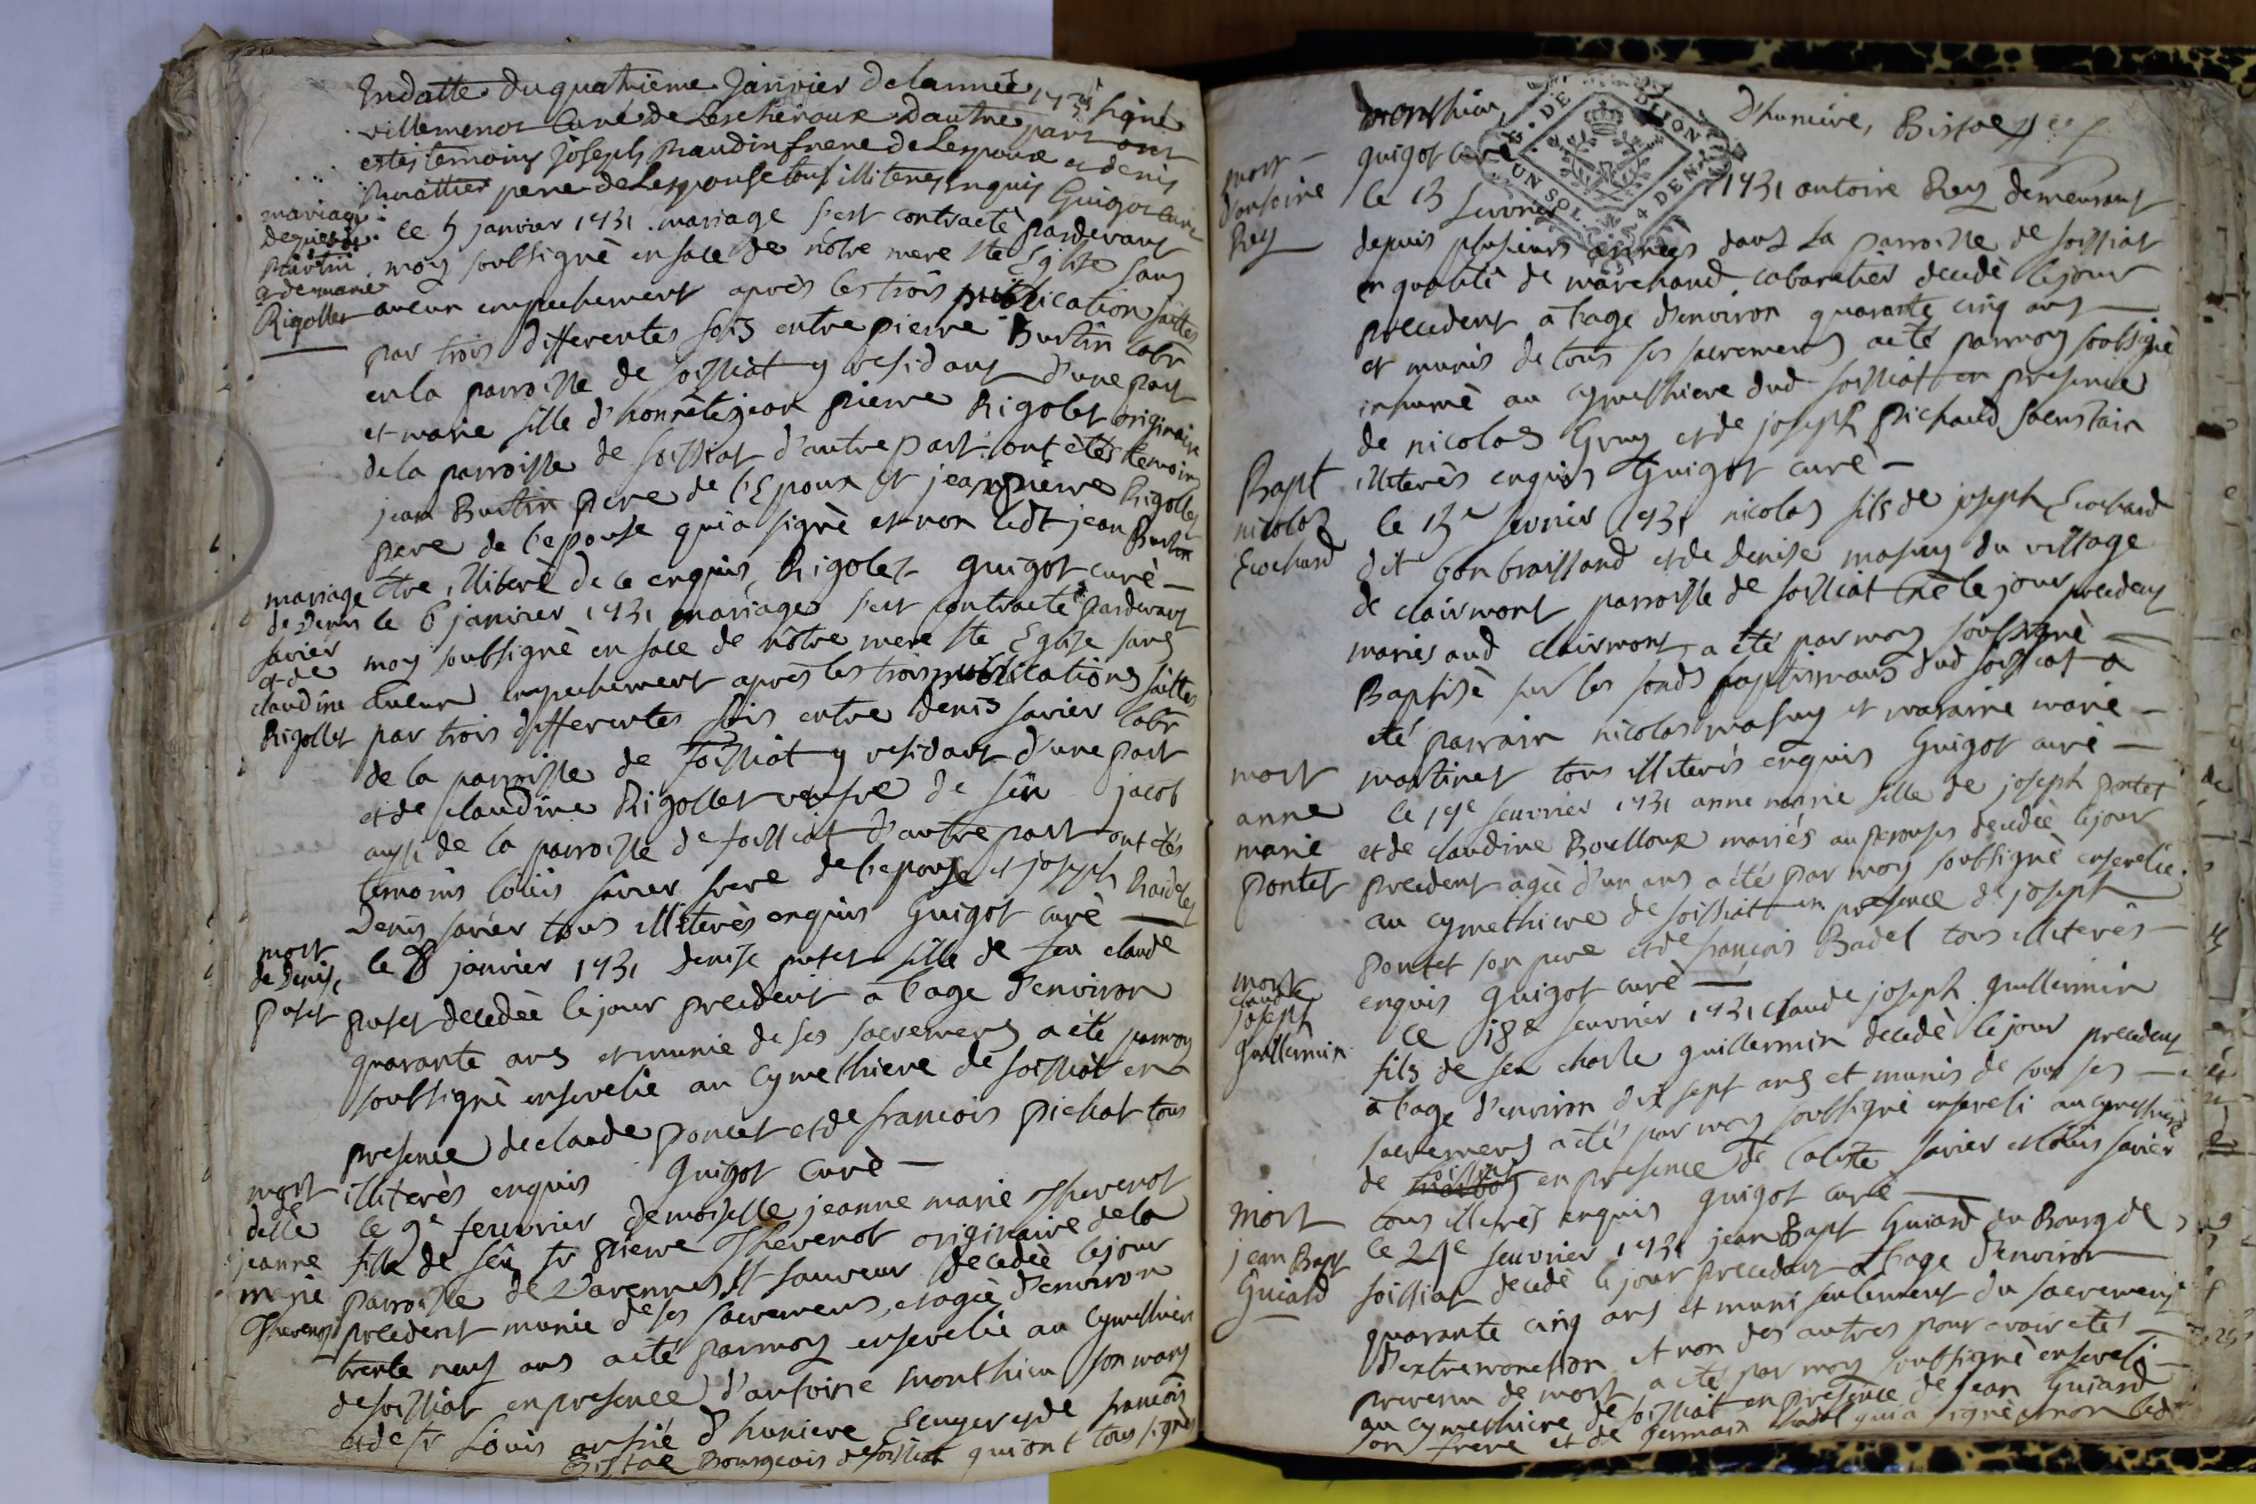 En datte du quatrieme Janvier de lannee 1731 signé
villemenot curé de Lescheroux d'autre part ont
estés temoins joseph frere de Lespoux et denis
pere de Lespouse tous illiteres enquis Guigot curé
mariage
de pierre
Burtin
et de marie
Rigollet
le 5 janvier 1731 mariage s'est contracté pardevant
moy soubsigné en face de nôtre mere ste Eglise sans
aucun empechement après les trois publication faittes
par trois differentes fois entre pierre Burtin labr
en la parroisse de foissiat y residant d'une part
et marie fille d'honnête jean pierre Rigolet originaire
de la parroisse de foissiat d'autre part ont étés temoins
jean Burtin pere de l'Epoux et jean pierre Rigollet
pere de l'epouse qui a signé et non ledt jean Burtin
être illiteré de ce enquis Rigolet guigot curé
mariage
de Denis
favier
et de
claudine
Rigollet
le 6 janvier 1731 mariage s'est contracté pardevant
moy soubsigné en face de nôtre mere ste Eglise sans
aucun empechement après les trois publications faittes
par trois differentes fois entre Denis favier labr
de la parroisse de foissiat y residant d'une part
et de claudine Rigollet veufve de feu jacob
aussi de la parroisse de foissiat d'autre part ont étés
temoins loüis favier frere de l'epoux et joseph
Denis favier tous illiterés enquis Guigot curé
mort
de Denise
putet
le 8 janvier 1731 Denise putet fille de feu claude
putet decedée le jour precedent a l'age d'environ
quarante ans et munie de ses sacremens a été parmoy
soubsigné ensevelie au cymethiere de foissiat en
presence de claude poncet et de francois pichat tous
illiterés enquis Guigot curé
mort
de
delle
jeanne
marie
Thevenot
le 9e feuvrier demoiselle jeanne marie Thevenot
fille de feu sr pierre Thevenot originaire de la
parroisse de Varennes st sauveur decedée le jour
precedent munie de ses sacremens, et agée d'environ
trente neuf ans a été parmoy ensevelie au cymethiere
de foissiat en presence d'antoine monthieu son mary
et de sr Loüis d'humiere Ecuyer et de francois
Bistae Bourgeois de foissiat qui ont tous signé
monthieu, d'humiere, Bistae
guigot curé
G. DE DIION
UN SOL 4 DENRS
mort
d'antoine
Rey
le 13 feuvrier 1731 antoine Rey demeurant
depuis plusieurs années dans la parroisse de foissiat
en qualité de marchand cabaretier decedé le jour
precedent a l'age d'environ quarante cinq ans
et munis de tous ses sacremens a été parmoy soubsigné
inhumé au cymethiere dud foissiat en presence
de nicolas Gruy et de joseph pichaud sacristain
illiterés enquis Guigot curé
Bapt
nicolas
Ecochard
le 13e feuvrier 1731 nicolas fils de joseph Ecochard
dit et de Denise masuy du village
de clairmont parroisse de foissiat né le jour precedent
mariés aud clairmont, a été par moy soubsigné
Baptisé sur les fonds baptismaux dud foissiat a
été parrain nicolas masuy et maraine marie
martinet tous illiterés enquis Guigot curé
mort
anne
marie
pontet
le 17e feuvrier 1731 anne marie fille de joseph pontet
et de claudine Boulloux mariés decedée le jour
precedent agée d'un ans a été par moy soubsigné ensevelie
au cymethiere de foissiat en presence de joseph
pontet son pere et de françois Badel tous illiterés
enquis Guigot curé
mort
claude
joseph
guillermin
le 18e feuvrier 1731 claude joseph guillermin
fils de feu charle guillermin decedé le jour precedent
a l'age d'environ dix sept ans et munis de tous ses
sacremens a été par moy soubsigné enseveli au cymethiere
de foissiat en presence de favier et loüis favier
tous illiterés enquis guigot curé
mort
jean Bapt
Guiard
le 24e feuvrier 1731 jean Bapt Guiard du Bourg de
foissiat decedé le jour precedant a l'age d'environ
quarante cinq ans et muni seulement du sacrement
d'extremonction et non des autres pour avoir eté
prevenu de mort a été par moy soubsigné enseveli
au cymethiere de foissiat en presence de jean Guiard
son frere et de germain qui a signé et non led